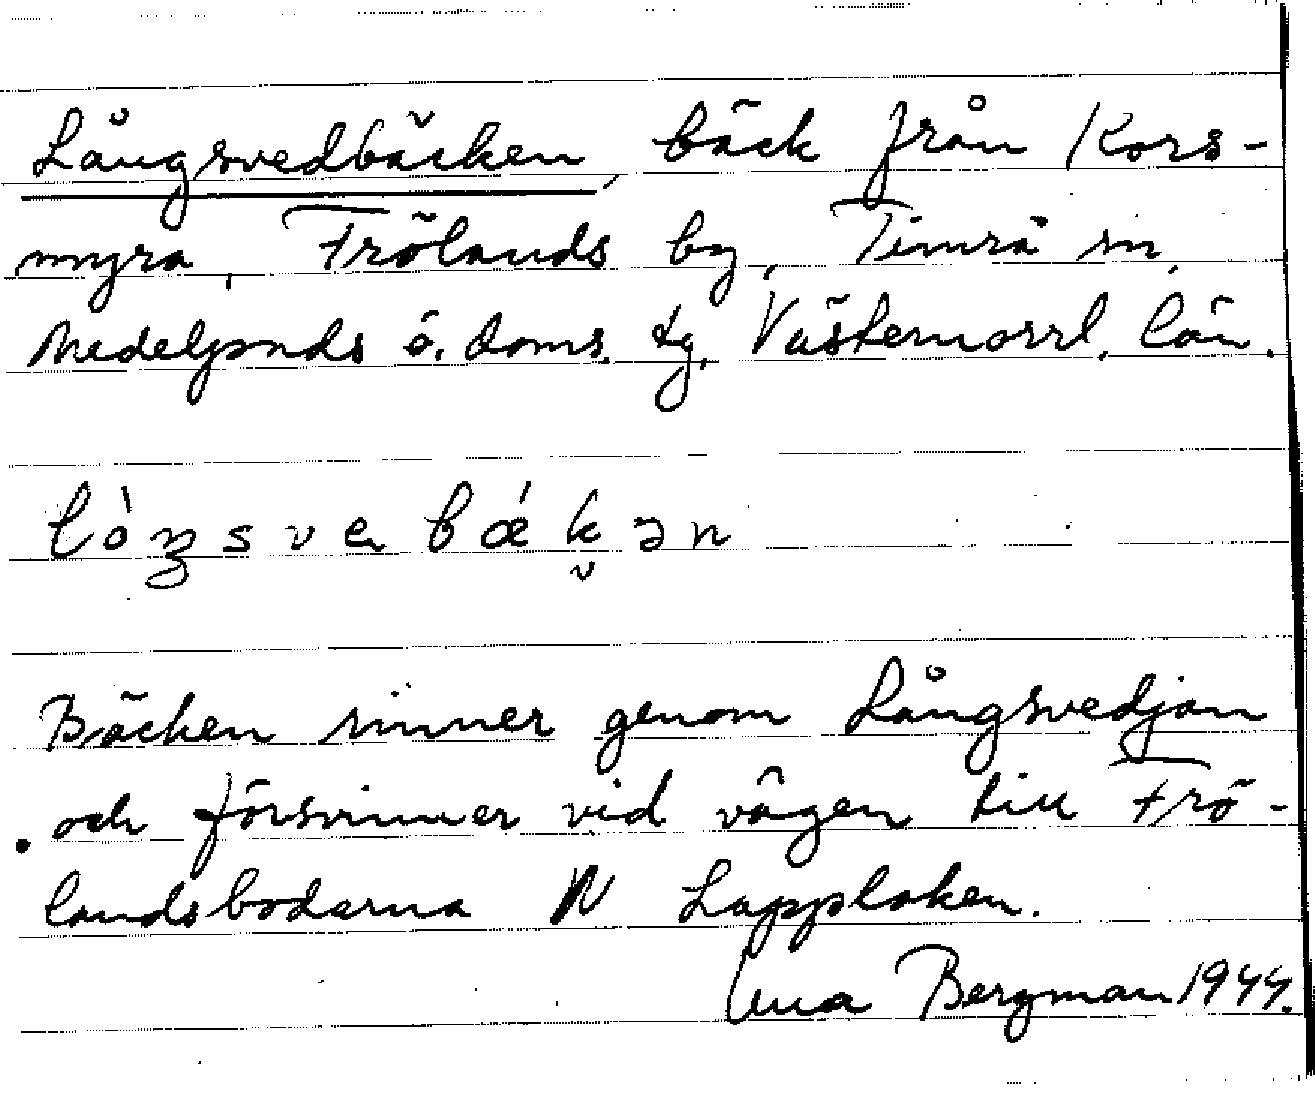 Långsvedbäcken, bäck från Kors-
myra, Frölands by, Timrå sn,
Medelpads ö. doms. tg, Västernorrl. län.
lò̀ŋsvebǽk̬ən
Bäcken rinner genom Långsvedjan
och försvinner vid vägen till Frö-
landsboderna N Lapploken.
Anna Bergman 1944.